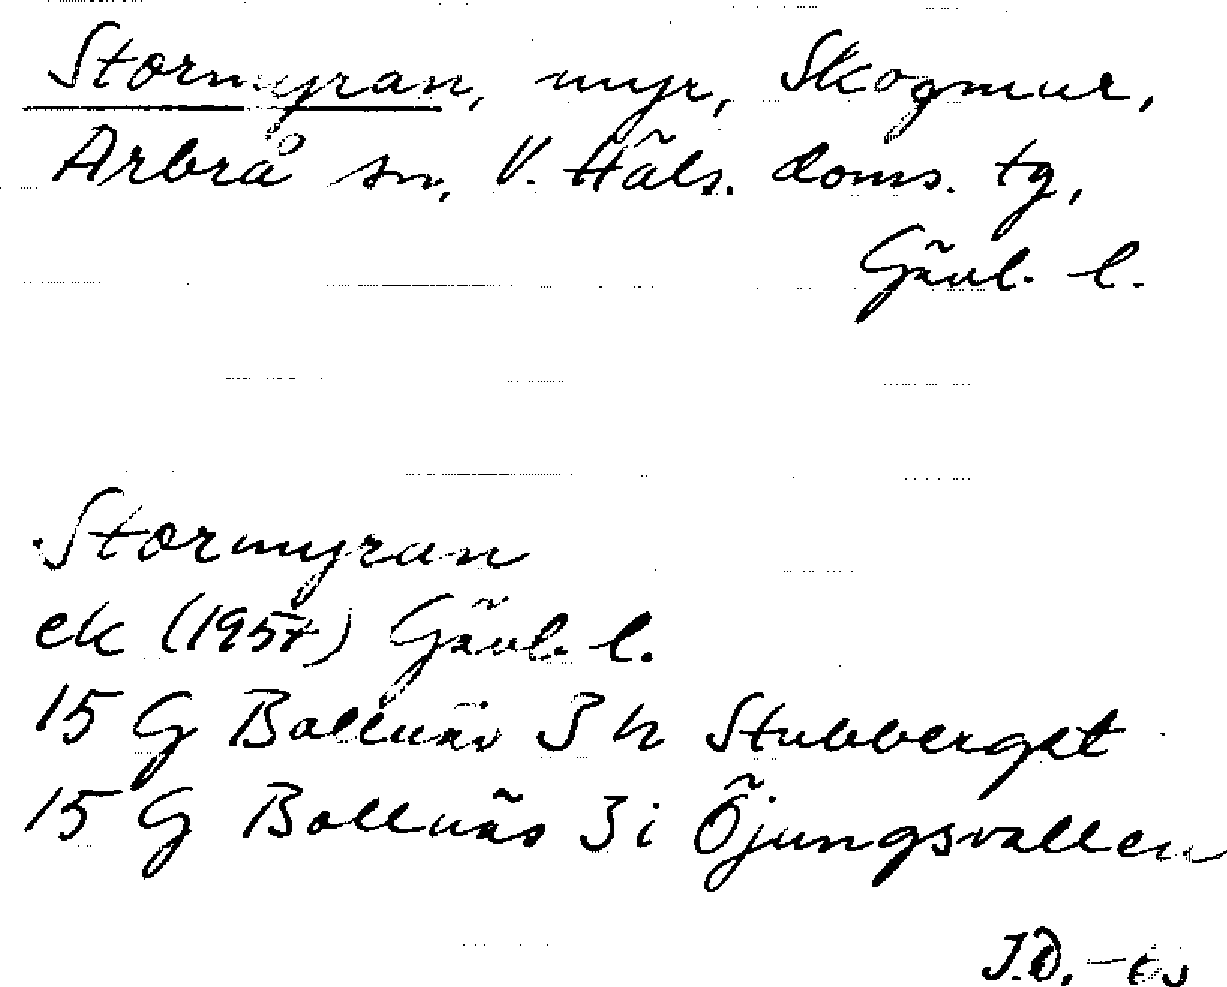 Stormyran, myr, Skogmur,
Arbrå sn, V. Häls. doms. tg,
Gävl. l.
Stormyran
ek (1957) Gävl. l.
15 G Bollnäs 3 h Stubberget
15 G Bollnäs 3 i Öjungsvallen
J.D.